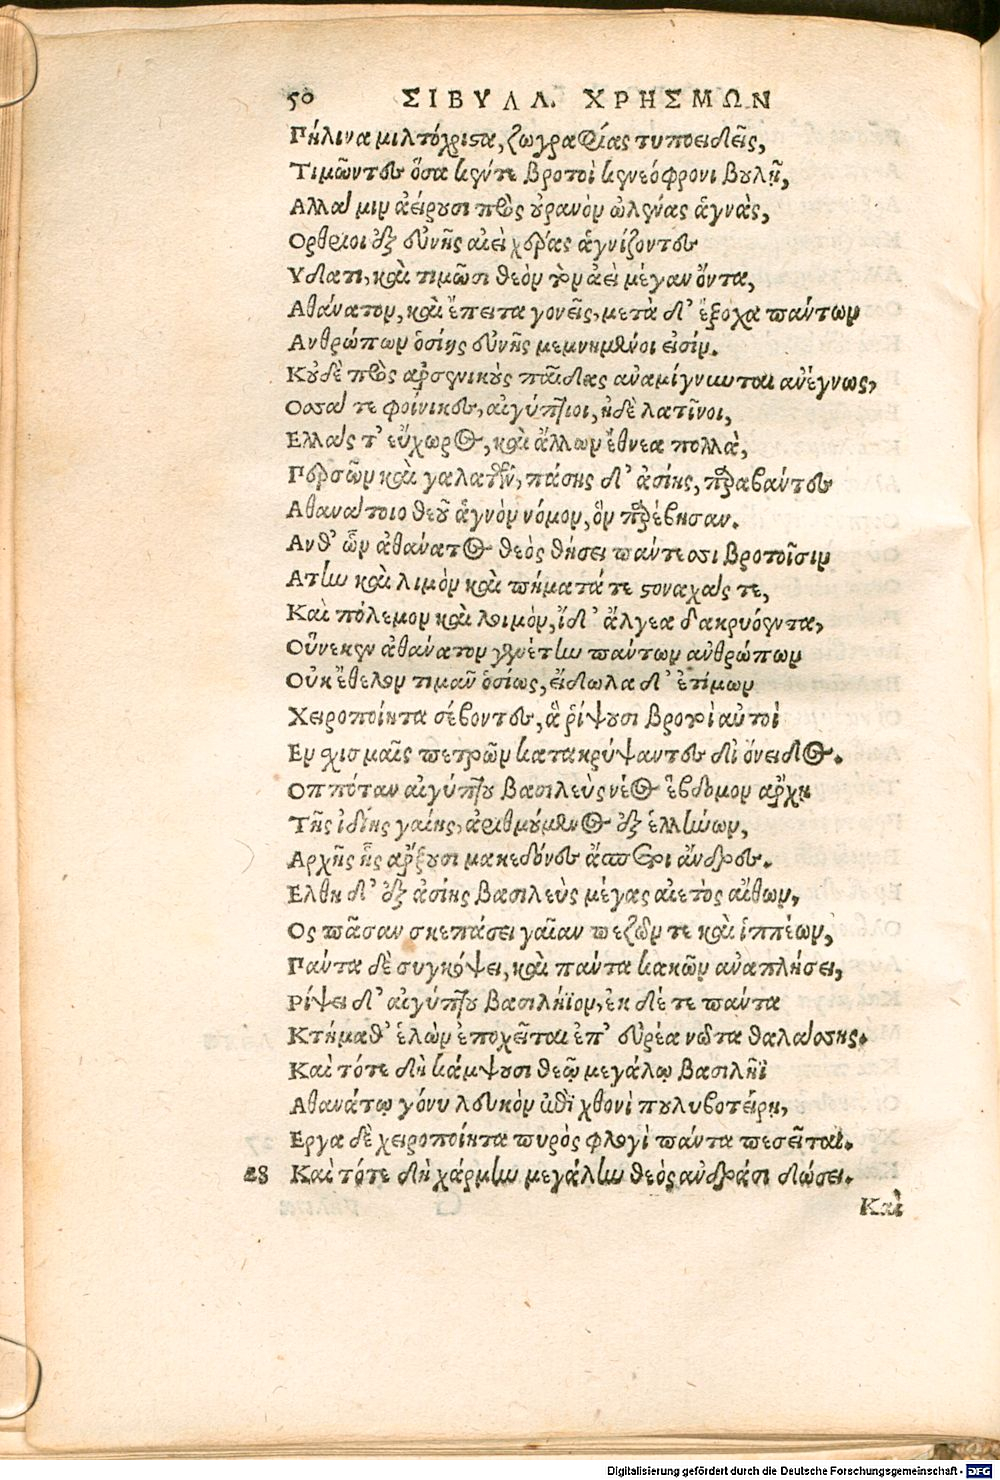 50 ΣΙΒΥΛΛ. ΧΡΗΣΜΩΝ
Πήλινα μιλτόχριστα, ζωγραφίας τυποειδεῖς,
Τιμῶντες ὅσα κέντε βροτοὶ κενεόφρονι βουλῇ,
Αλλὰ μὴν ἀείρουσι πρὸς οὐρανὸν ὠλένας ἁγνὰς,
Ορθριοι ἐξ εὐνῆς αἰεὶ χέρας ἁγνίζοντες
Υδατι, καὶ τιμῶσι θεὸν τὸν ἀεὶ μέγαν ὄντα,
Αθάνατον, καὶ ἔπειτα γονεῖς, μετὰ δ' ἔξοχα πάντων
Ανθρώπων ὁσίης εὐνῆς μεμνημένοι εἰσίν.
Κοὐδὲ πρὸς ἀρσενικοὺς παῖδας ἀναμίγνυνται ἀνάγνως,
Οσσα τε φοίνικες, αἰγύπτιοι, ἠδὲ λατῖνοι,
Ελλάς τ' εὔχωρος, καὶ ἄλλων ἔθνεα πολλὰ,
Περσῶν καὶ γαλατῶν, πάσης δ' ἀσίης, παραβάντες
Αθανάτοιο θεοῦ ἁγνὸν νόμον, ὃν παρέβησαν.
Ανθ' ὧν ἀθάνατος θεὸς θήσει πάντεσσι βροτοῖσιν
Ατην καὶ λιμὸν καὶ πήματά τε στοναχάς τε,
Καὶ πόλεμον καὶ λοιμὸν, ἰδ' ἄλγεα δακρυόεντα,
Οὕνεκεν ἀθάνατον γενέτην πάντων ἀνθρώπων
Οὐκ ἔθελον τιμᾶν ὁσίως, εἴδωλα δ' ἐτίμων
Χειροποίητα σέβοντες, ἃ ῥίψουσι βροτοὶ αὐτοὶ
Εν σχισμαῖς πετρῶν κατακρύψαντες δι' ὄνειδος.
Οππόταν αἰγύπτου βασιλεὺς νέος ἕβδομος ἄρχῃ
Τῆς ἰδίης γαίης, ἀριθμούμενος ἐξ ἑλλήνων,
Αρχῆς ἧς ἄρξουσι μακεδόνες ἄσπεροι ἄνδρες.
Ελθῃ δ' ἐξ ἀσίης βασιλεὺς μέγας αἰετὸς αἴθων,
Ος πᾶσαν σκεπάσει γαῖαν πεζῶν τε καὶ ἱππέων,
Πάντα δὲ συγκόψει, καὶ πάντα κακῶν ἀναπλήσει,
Ρίψει δ' αἰγύπτου βασιλήϊον, ἐκ δέ τε πάντα
Κτήμαθ' ἑλὼν ἐποχεῖται ἐπ' εὐρέα νῶτα θαλάσσης.
Καὶ τότε δὴ κάμψουσι θεῷ μεγάλῳ βασιλῆϊ
Αθανάτῳ γόνυ λευκὸν ἐπὶ χθονὶ πουλυβοτείρῃ,
Εργα δὲ χειροποίητα πυρὸς φλογὶ πάντα πεσεῖται.
28 Καὶ τότε δὴ χάρμην μεγάλην θεὸς ἀνδράσι δώσει.
Καὶ
Digitalisierung gefördert durch die Deutsche Forschungsgemeinschaft - DFG